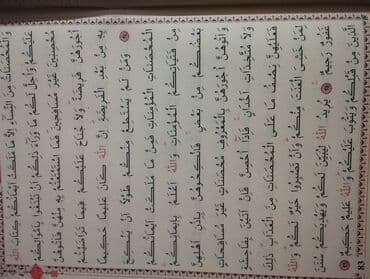 83
وَالْمُحْصَنَاتُ مِنَ النِّسَاءِ إِلَّا مَا مَلَكَتْ أَيْمَانُكُمْ كِتَابَ اللَّهِ
عَلَيْكُمْ وَأُحِلَّ لَكُمْ مَا وَرَاءَ ذَلِكُمْ أَنْ تَبْتَغُوا بِأَمْوَالِكُمْ
مُحْصِنِينَ غَيْرَ مُسَافِحِينَ فَمَا اسْتَمْتَعْتُمْ بِهِ مِنْهُنَّ فَآتُوهُنَّ
أُجُورَهُنَّ فَرِيضَةً وَلَا جُنَاحَ عَلَيْكُمْ فِيمَا تَرَاضَيْتُمْ
بِهِ مِنْ بَعْدِ الْفَرِيضَةِ إِنَّ اللَّهَ كَانَ عَلِيمًا حَكِيمًا ٢٤
وَمَنْ لَمْ يَسْتَطِعْ مِنْكُمْ طَوْلًا أَنْ يَنْكِحَ
الْمُحْصَنَاتِ الْمُؤْمِنَاتِ فَمِنْ مَا مَلَكَتْ أَيْمَانُكُمْ
مِنْ فَتَيَاتِكُمُ الْمُؤْمِنَاتِ وَاللَّهُ أَعْلَمُ بِإِيمَانِكُمْ
بَعْضُكُمْ مِنْ بَعْضٍ فَانْكِحُوهُنَّ بِإِذْنِ أَهْلِهِنَّ
وَآتُوهُنَّ أُجُورَهُنَّ بِالْمَعْرُوفِ مُحْصَنَاتٍ غَيْرَ مُسَافِحَاتٍ
وَلَا مُتَّخِذَاتِ أَخْدَانٍ فَإِذَا أُحْصِنَّ فَإِنْ أَتَيْنَ بِفَاحِشَةٍ
فَعَلَيْهِنَّ نِصْفُ مَا عَلَى الْمُحْصَنَاتِ مِنَ الْعَذَابِ ذَلِكَ
لِمَنْ خَشِيَ الْعَنَتَ مِنْكُمْ وَأَنْ تَصْبِرُوا خَيْرٌ لَكُمْ وَاللَّهُ
غَفُورٌ رَحِيمٌ ٢٥ يُرِيدُ اللَّهُ لِيُبَيِّنَ لَكُمْ وَيَهْدِيَكُمْ سُنَنَ
الَّذِينَ مِنْ قَبْلِكُمْ وَيَتُوبَ عَلَيْكُمْ وَاللَّهُ عَلِيمٌ حَكِيمٌ ٢٦